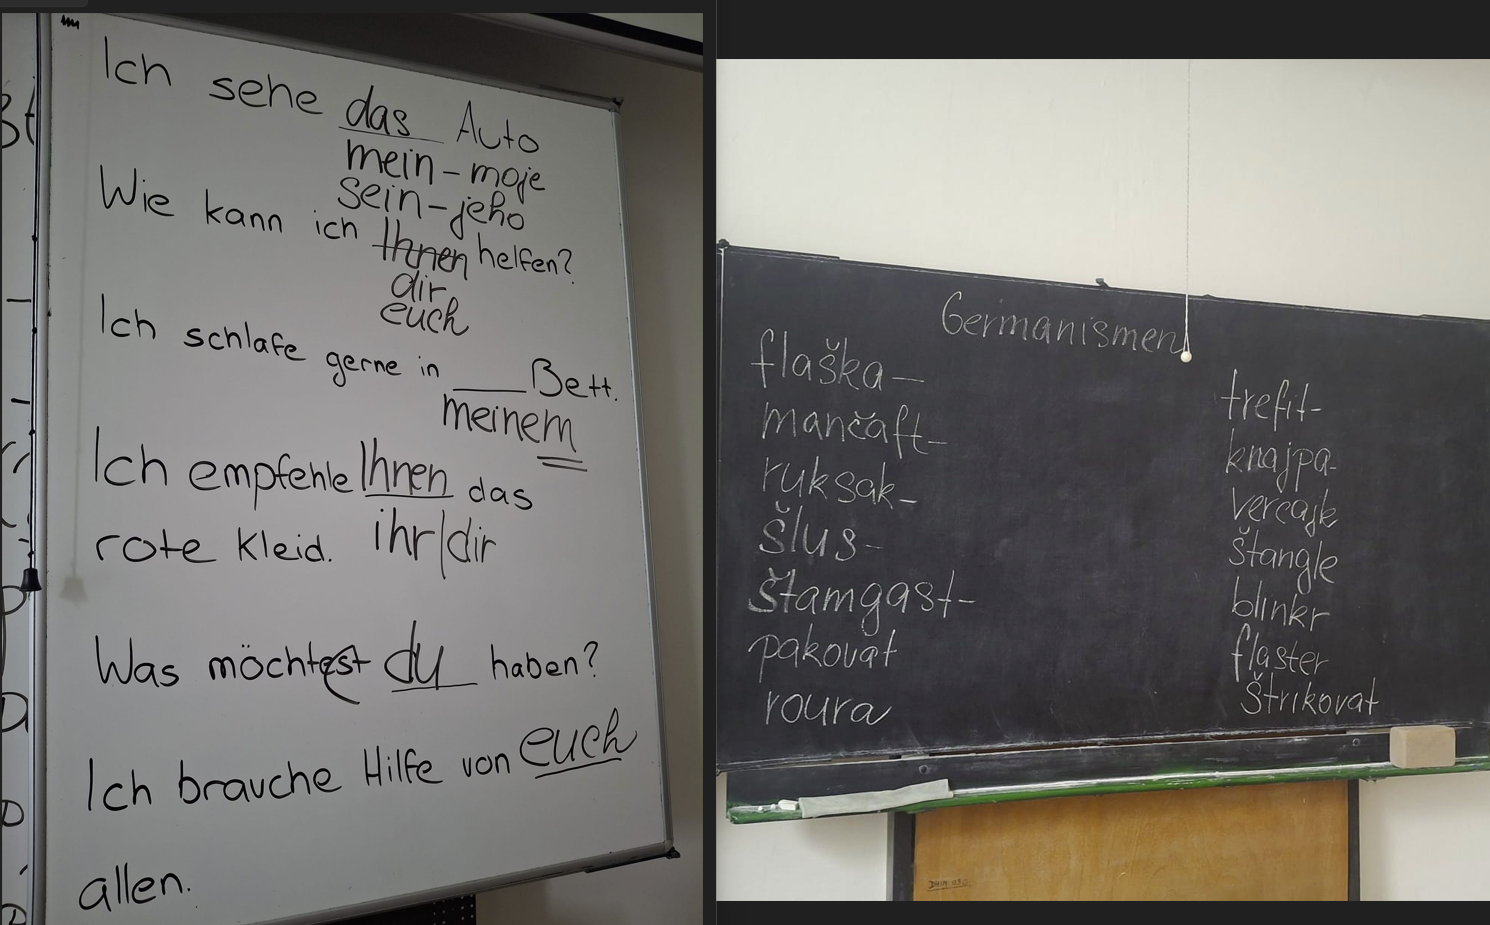 Ich sehe das Auto
mein – moje
sein – jeho
Wie kann ich Ihnen helfen?
dir
euch
Ich schlafe gerne in ____ Bett.
meinem
Ich empfehle Ihnen das
rote Kleid. ihr/dir
Was möchtest du haben?
Ich brauche Hilfe von euch
allen.
Germanismen
flaška –
mančaft –
ruksak –
šlus –
štamgast –
pakovat
roura
trefit –
knajpa –
vercajk
štangle
blinkr
flaster
štrikovat